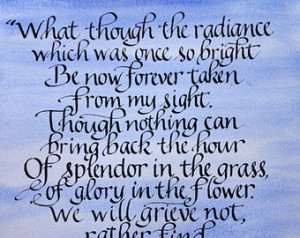 "What though the radiance
which was once so bright
Be now forever taken
from my sight.
Though nothing can
bring back the hour
Of splendor in the grass,
of glory in the flower.
We will grieve not,
rather find